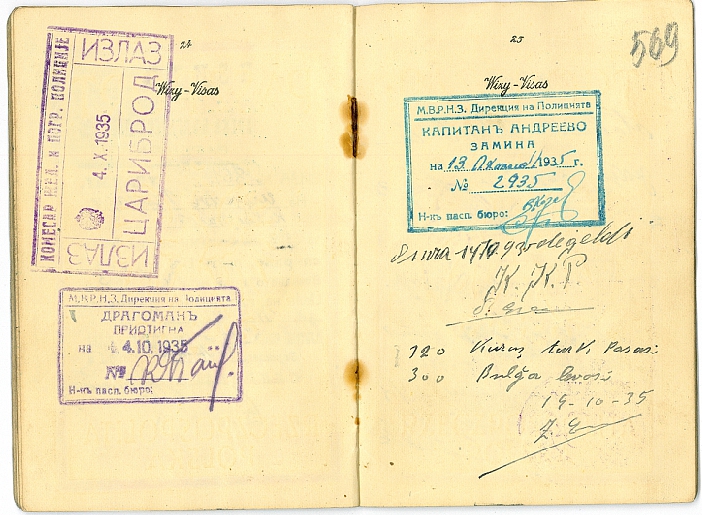 24
Wizy-Visas
КОМЕСАР ЖЕЛ. и ПОГР. ПОЛИЦИЈЕ
ИЗЛАЗ
ЦАРИБРОД
4. X. 1935
ИЗЛАЗ
М.В.Р.Н.З. Дирекция на Полицията
ДРАГОМАНЪ
ПРИСТИГНА
на 4.10.1935
№
Н-къ пасп. бюро:
25
569
Wizy-Visas
М.В.Р.Н.З. Дирекция на Полицията
КАПИТАНЪ АНДРЕЕВО
ЗАМИНА
на 13 1935 г.
№ 2935
Н-къ пасп. бюро:
14/10/935 de geldi
K. K. P.
120 Kuruş Türk Parası
300 Bulğa levası
14-10-35